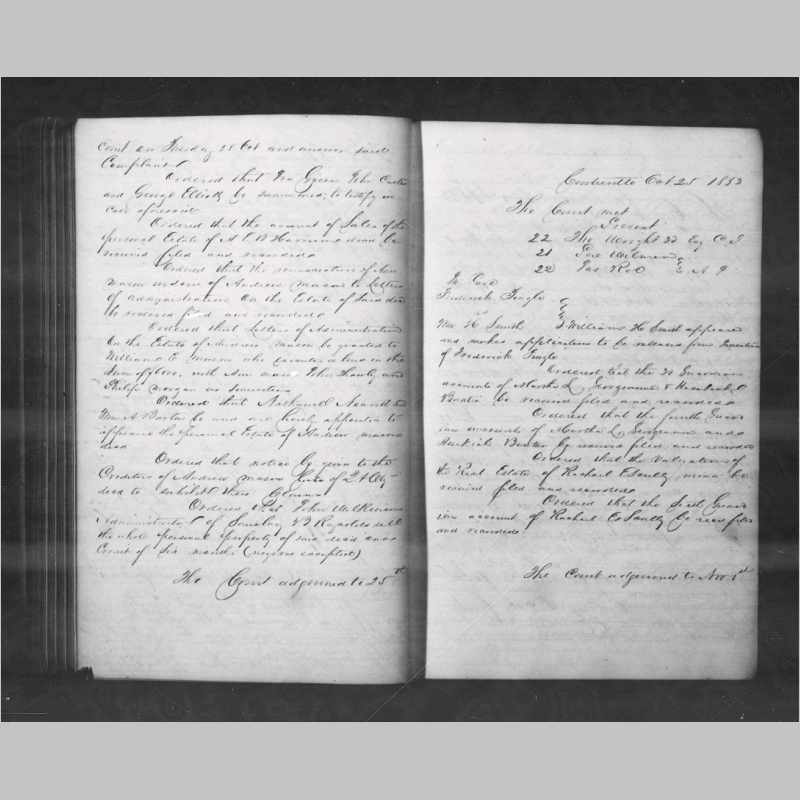 Court on Tuesday 25 Oct and answer said
Complainant
Ordered that Ira Green John Carter
and George Elliott be summoned to testify in
case aforesaid
Ordered that the account of Sales of the
personal Estate of A C B Harrison decd be
received filed and recorded
Ordered that the renunciation of Ann
Mason widow of Andrew Mason to Letters
of administration on the Estate of said decd
be received filed and recorded
Ordered that Letters of Administration
on the Estate of Andrew Mason be granted to
William E Mason who executes a bond in the
Sum of with Ann Mason John and
Philip Morgan as Sureties
Ordered that Nathaniel and
Wm A Boston be and are hereby appointed to
appraise the personal Estate of Andrew Mason
decd
Ordered that notice be given to the
Creditors of Andrew Mason late of Q A Cty
decd to exhibit their Claims
Ordered that John Wilkinson
Administrator of B Reynolds sell
the whole personal property of said decd on a
Credit of Six months (negroes excepted)
The Court adjourned to 25th
Centreville Oct 25 1853
The Court met
Present
22 Tho Wright 3d Esq C J
21 Pere Wilmer
22 Jas Roe } E A J
In Case
Frederick Tingle
Wm H Smith } William H Smith appeared
and makes application to be released from
of Frederick Tingle
Ordered that the 3d Guardian
accounts of Martha L, Georgeanna & Hezekiah
be received filed and recorded
Ordered that the fourth Guard
ian accounts of Martha L, Georgeanna and
Hezekiah be received filed and recorded
Ordered that the Valuation of
the Real Estate of Rachel E Saulsby minor be
received filed and recorded
Ordered that the first Guard
ian account of Rachel E Saulsby be recd filed
and recorded
The Court adjourned to Nov 1st